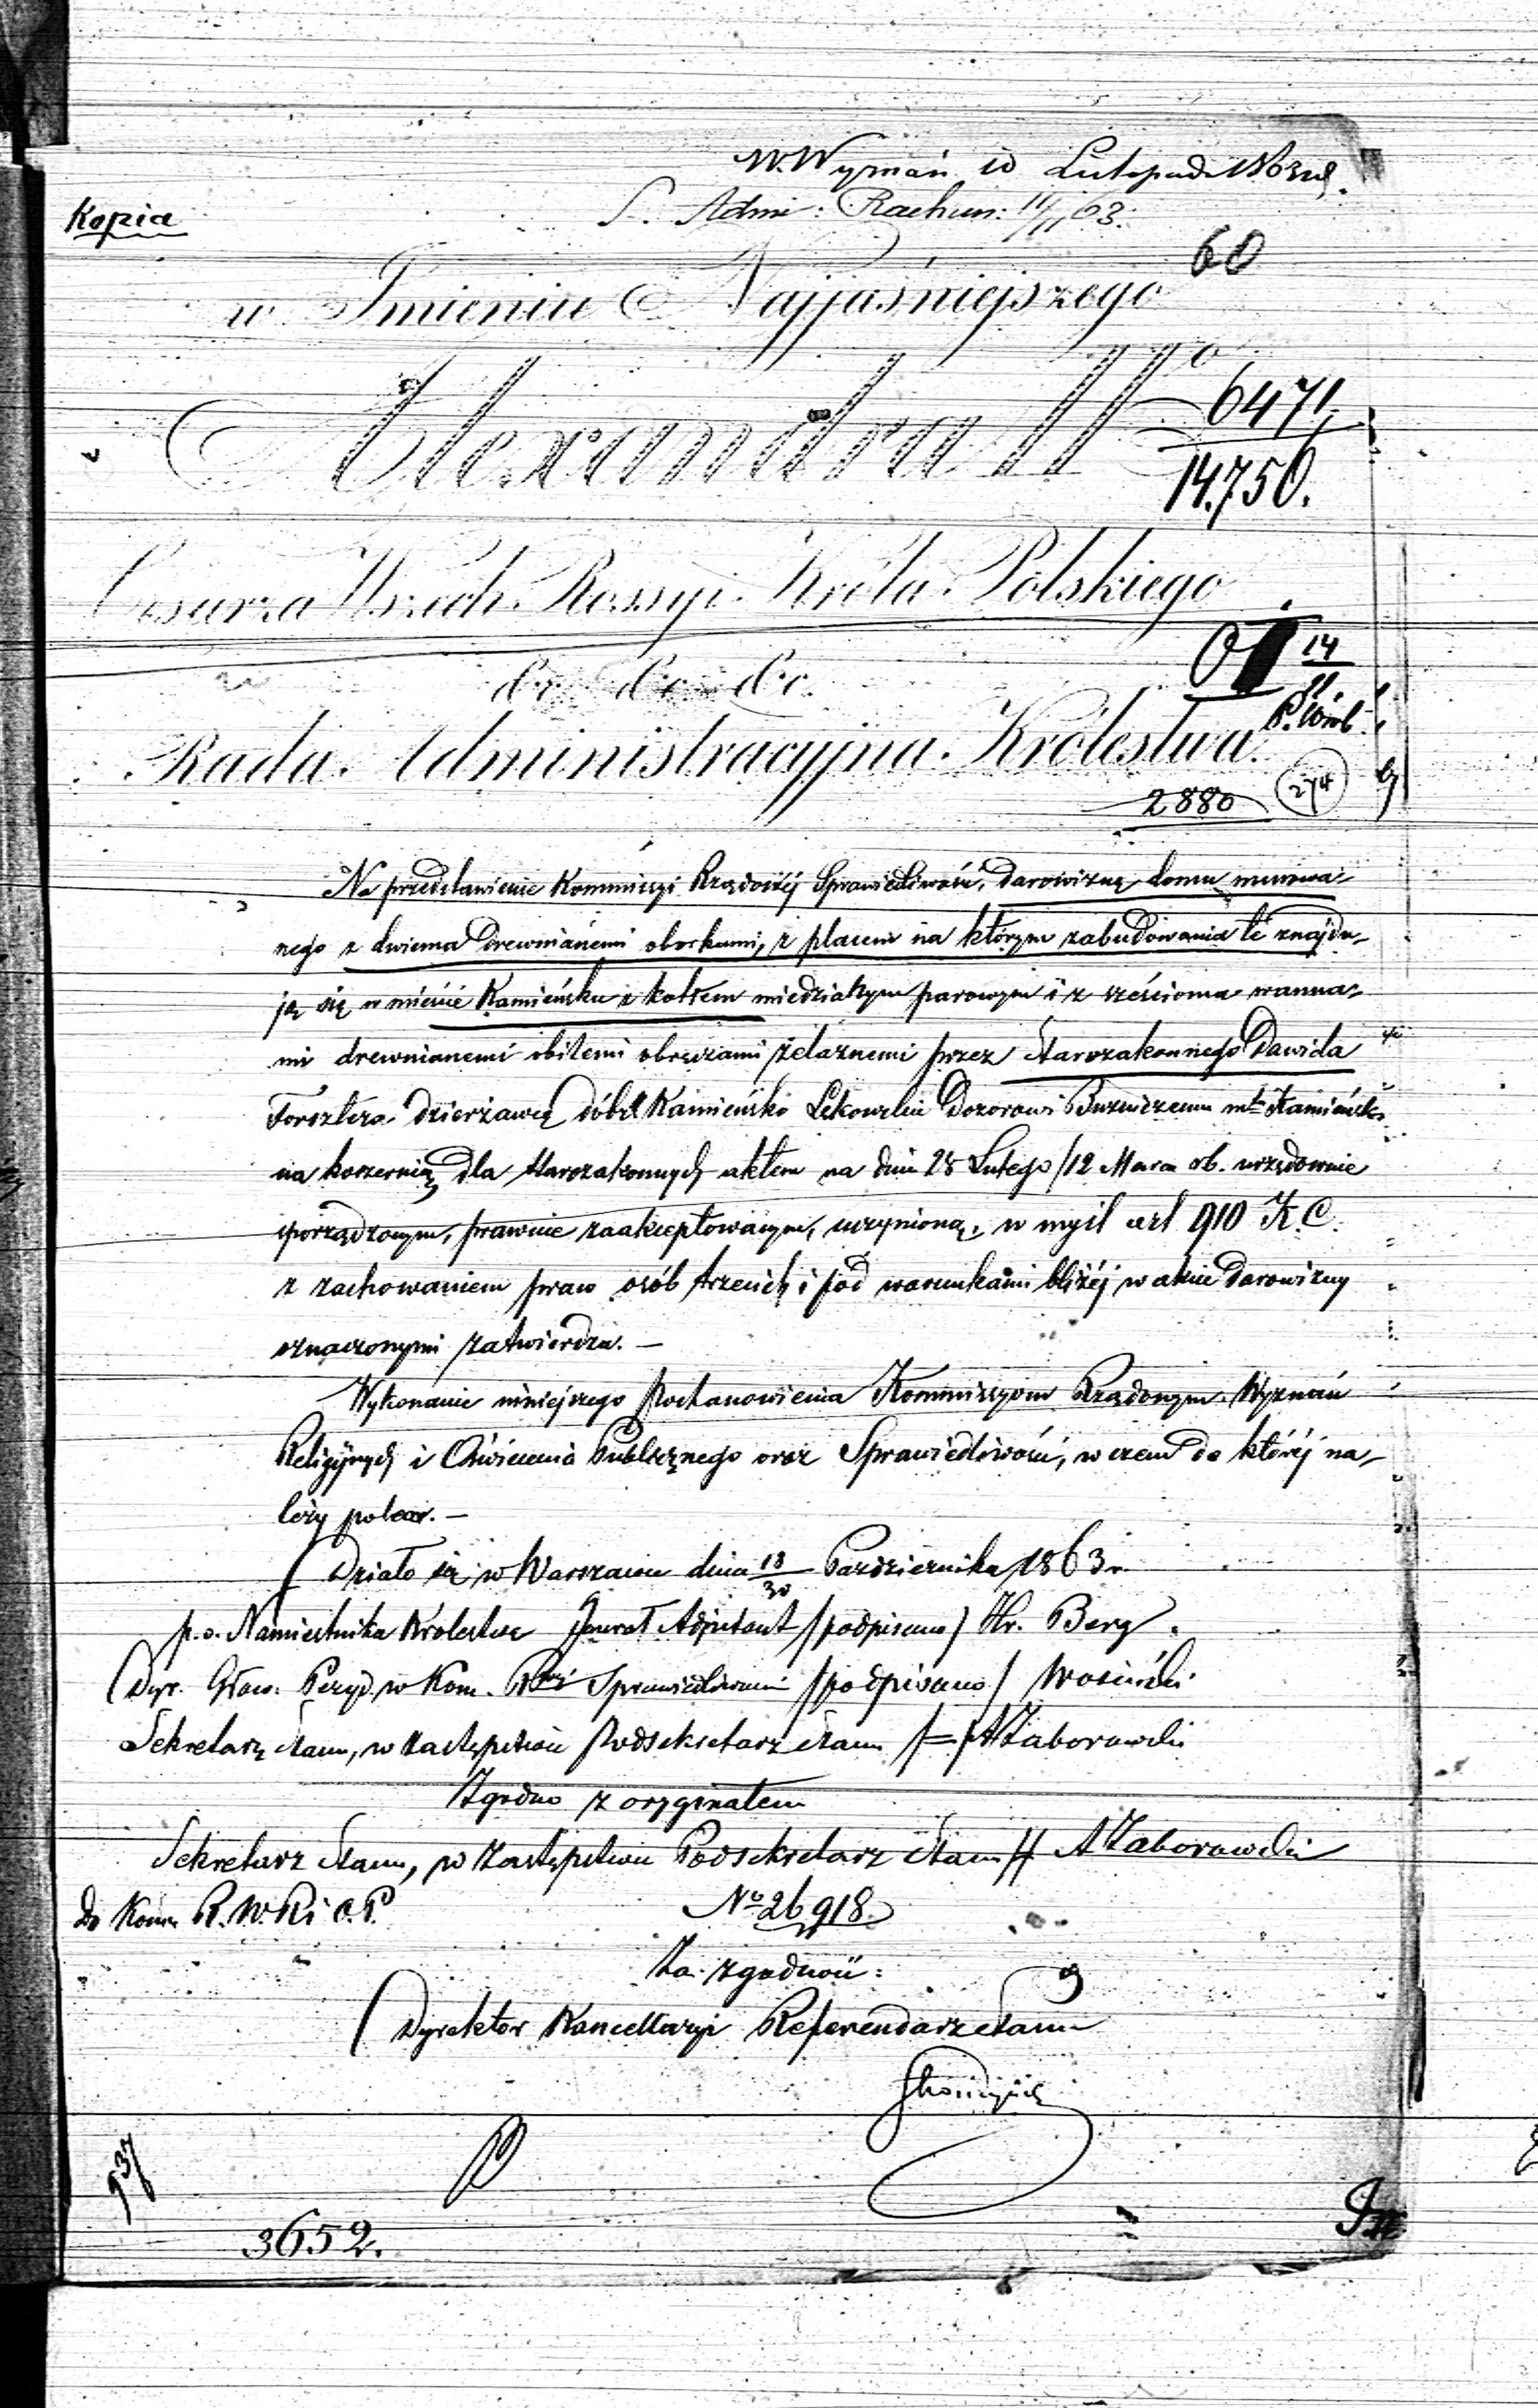 W. Wyznań 10 Listopada 1863 r.
S. Admi: Rachun: 11/11 63.
Kopia
60
w Imieniu Najjaśniejszego
Alexandra II go
6471
14.750.
Cesarza Wszech Rossyi Króla Polskiego
14
11.
&c &c &c.
Rada Administracyjna Królestwa.
2880
274
Na przedstawienie Kommissyi Rządowéj Sprawiedliwości, darowiznę domu murowa-
nego z dwiema drewnianemi oborkami, z placem na którym zabudowania te znajdu-
ją się w mieście Kamieńsku z kotłem miedzianym parowym i z sześcioma wanna-
mi drewnianemi obitemi obręczami żelaznemi przez Starozakonnego Dawida
Forsztera dzierżawcę dóbr Kamieńsko Dozorowi Bużniczemu mta Kamieńska
na koszernią dla starozakonnych aktem na dniu 28 Lutego/12 Marca rb. urzędownie
sporządzonym, prawnie zaakceptowanym, uczynioną, w myśl art 910 K.C.
z zachowaniem praw osób trzecich i pod warunkami bliżéj w akcie darowizny
oznaczonymi zatwierdza. —
Wykonanie niniejszego Postanowienia Kommissyom Rządowym Wyznań
Religijnych i Oświecenia Publicznego oraz Sprawiedliwości, w czem do któréj na-
leży poleca. —
Działo się w Warszawie dnia 18/30 Października 1863 r.
p.o. Namiestnika Królestwa Jenerał Adjutant /podpisano/ Hr. Berg.
Dyr. Głów. Prezyd. w Kom. Rzj Sprawiedliwości /podpisano/ Wosiński
Sekretarz Stanu, w zastępstwie Podsekretarz Stanu /=/ A Zaborowski
Zgodno z oryginałem
Sekretarz Stanu, w zastępstwie Podsekretarz Stanu // A Zaborowski
Do Kom. R. W. R. i O. P.
No 26918
Za zgodność:
Dyrektor Kancellaryi Referendarz Stanu
937
3652.